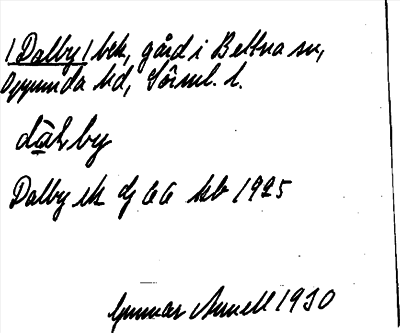 /Dalby/ bek, gård i Bettna sn,
Oppunda hd, Söml. l.
dälby
Dalby ek dj 66 kb 1925
Gunnar Arnell 1930